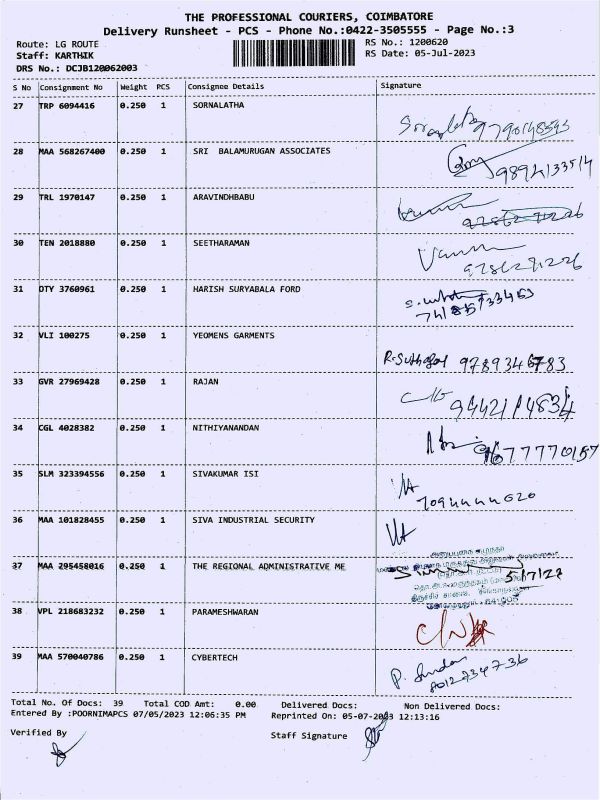 THE PROFESSIONAL COURIERS, COIMBATORE
Delivery Runsheet - PCS - Phone No.:0422-3505555 - Page No.:3
Route: LG ROUTE
RS No.: 1200620
Staff: KARTHIK
RS Date: 05-Jul-2023
DRS No.: DCJB120062003
S No Consignment No Weight PCS Consignee Details Signature
27 TRP 6094416 0.250 1 SORNALATHA
9790148593
28 MAA 568267400 0.250 1 SRI BALAMURUGAN ASSOCIATES
29 TRL 1970147 0.250 1 ARAVINDHBABU
30 TEN 2018880 0.250 1 SEETHARAMAN
31 DTY 3760961 0.250 1 HARISH SURYABALA FORD
32 VLI 100275 0.250 1 YEOMENS GARMENTS
33 GVR 27969428 0.250 1 RAJAN
34 CGL 4028382 0.250 1 NITHIYANANDAN
35 SLM 323394556 0.250 1 SIVAKUMAR ISI
36 MAA 101828455 0.250 1 SIVA INDUSTRIAL SECURITY
37 MAA 295458016 0.250 1 THE REGIONAL ADMINISTRATIVE ME
38 VPL 218683232 0.250 1 PARAMESHWARAN
39 MAA 570040786 0.250 1 CYBERTECH
Total No. Of Docs: 39 Total COD Amt: 0.00 Delivered Docs: Non Delivered Docs:
Entered By :POORNIMAPCS 07/05/2023 12:06:35 PM Reprinted On: 05-07-2023 12:13:16
Verified By
Staff Signature